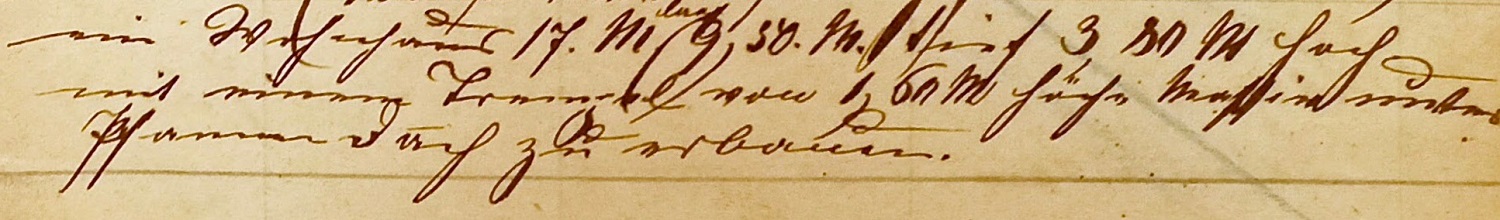 ein Wohnhaus 17. M lang 9,50. M. tief 3,80 M hoch
mit einem Trempel von 1,60 M höhe Massiv unter
Pfannen dach zu erbauen.